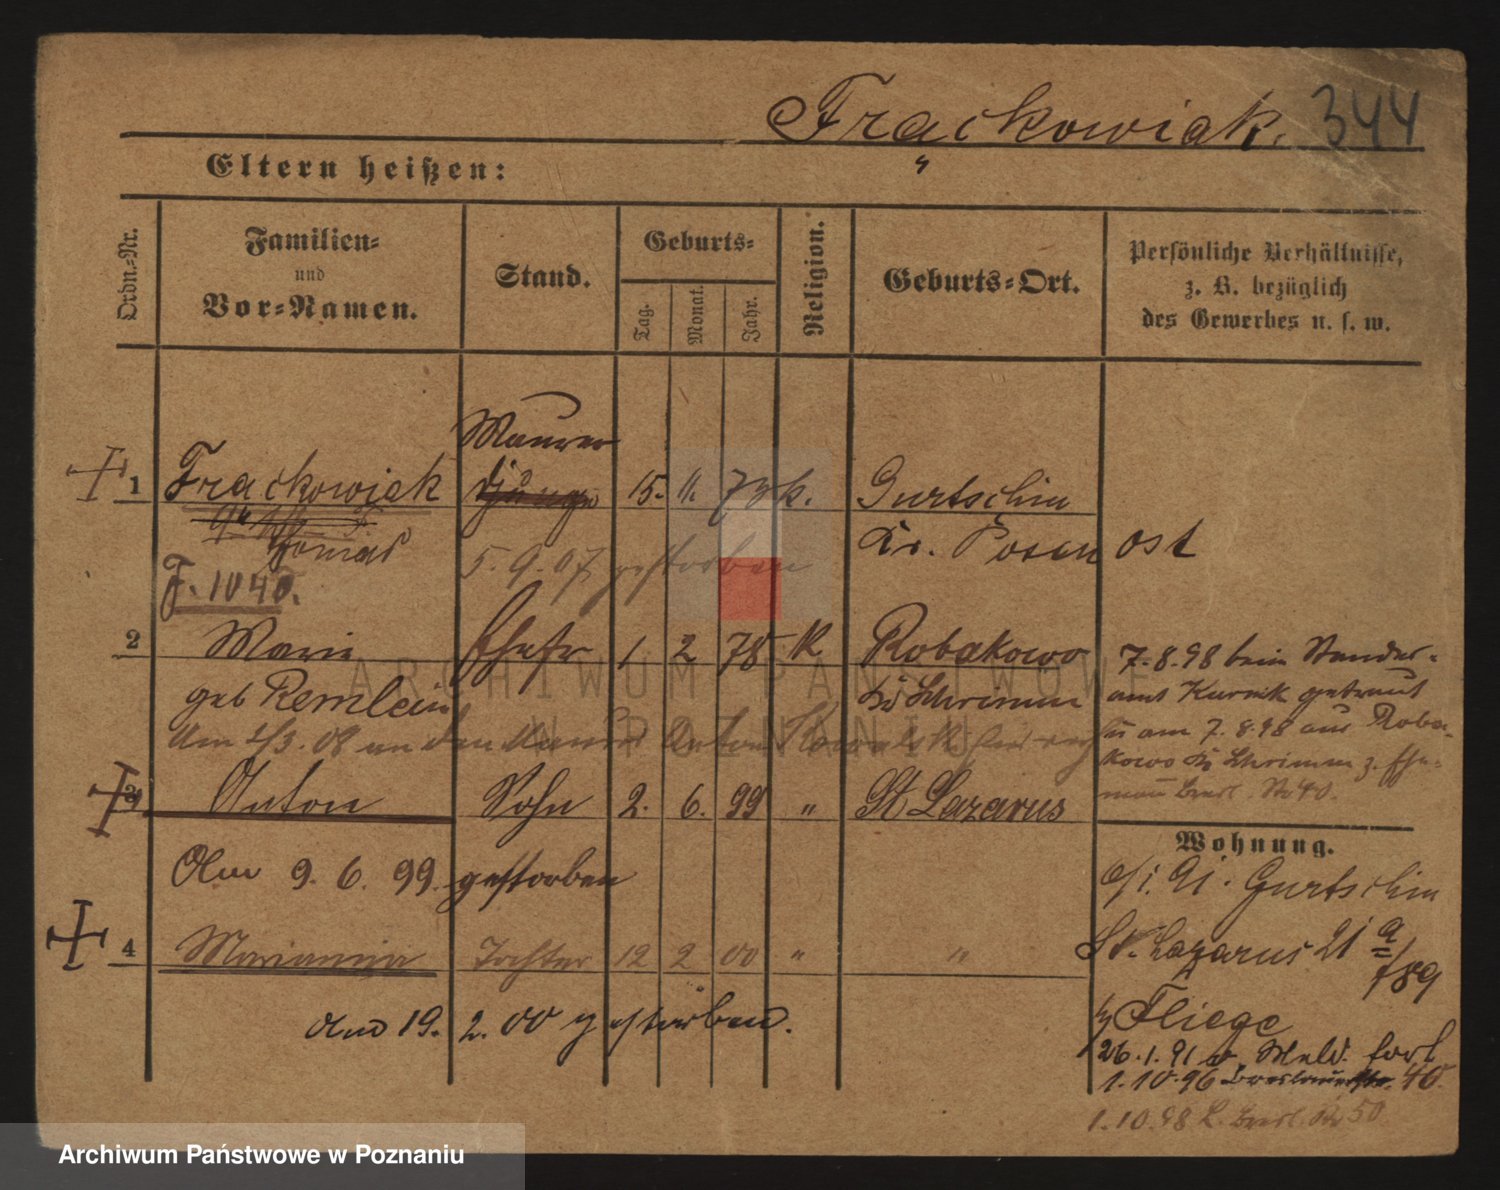 Frąckowiak. 344
Eltern heißen:
Ordn.-Nr.
Familien-
und
Vor-Namen.
Stand.
Geburts-
Tag.
Monat.
Jahr.
Religion.
Geburts-Ort.
Persönliche Verhältnisse,
z. B. bezüglich
des Gewerbes u. s. w.
Maurer
1 Frackowiak 15. 11. 73 k. Gurtschin
Tomas Kr. Posen Ost
5.9.07 gestorben
F. 1040.
2 Marie Ehefr 1 2 78 K Robakowo
geb Remlein Kr Schrimm
7.8.98 beim Standes-
amt Kurnik getraut
am 7.8.98 aus Roba-
kowo Kr Schrimm z. Ehe-
mann Bresl. Str 40.
Am 2/3.08 an den Maurer Anton
3 Anton Sohn 2. 6. 99 " St Lazarus
Am 9. 6. 99. gestorben
Wohnung.
Gurtschin
4 Marianna Tochter 12 2 00 " "
St. Lazarus 21 a/89
Am 19. 2. 00 gestorben.
b/ Fliege
26.1.91 v. Meld. fort
1.10.96 Breslauerstr. 40.
1.10.98 Z. Bresl. Str 50
ARCHIWUM PAŃSTWOWE
W POZNANIU
Archiwum Państwowe w Poznaniu